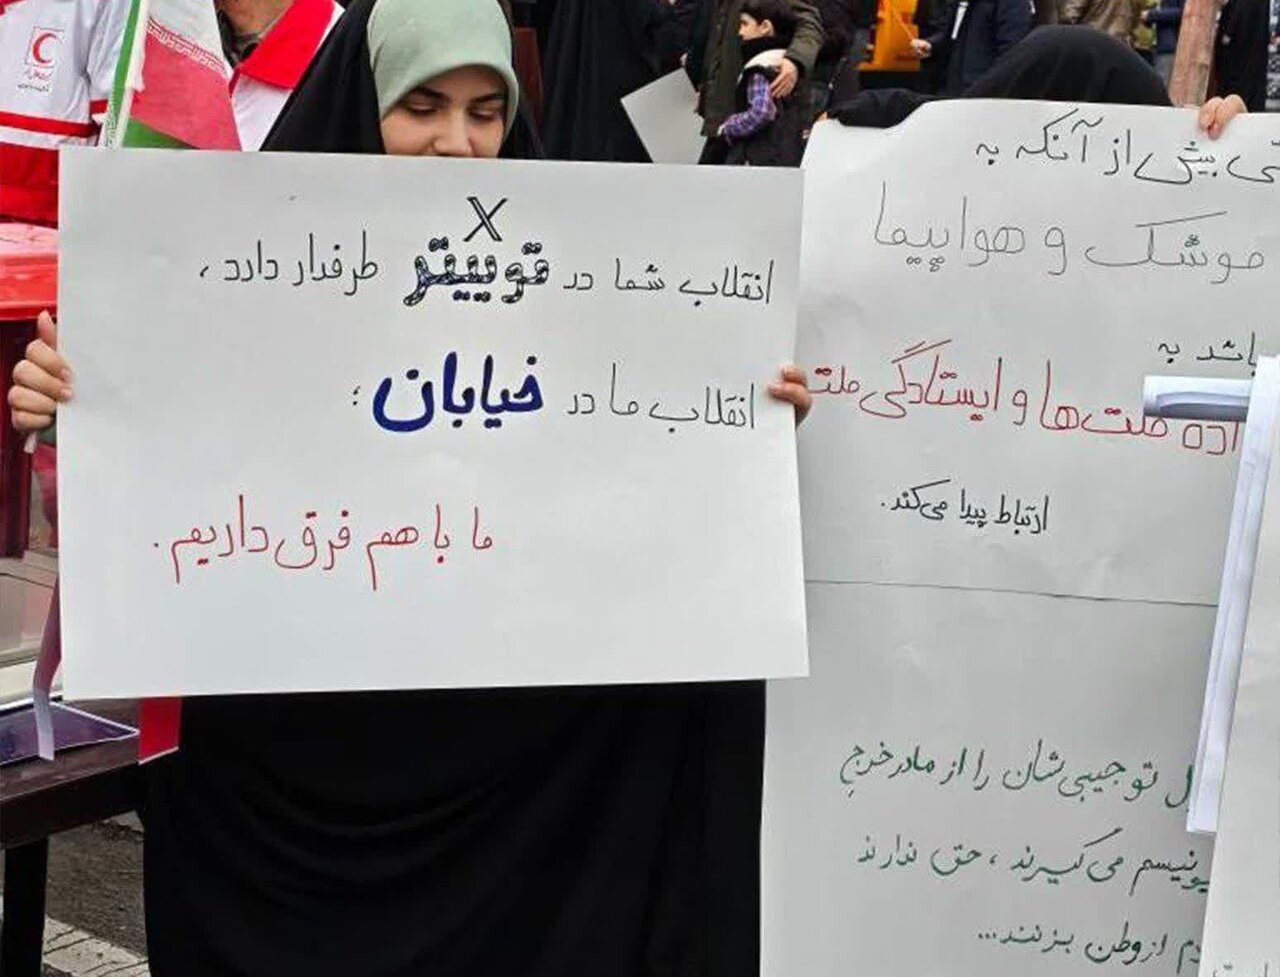 X
انقلاب شما در توییتر طرفدار دارد،
انقلاب ما در خیابان؛
ما با هم فرق داریم.
بیش از آنکه به
موشک و هواپیما
باشد به
ملت‌ها و ایستادگی ملت
ارتباط پیدا می‌کند.
توجیبی‌شان را از مادر خرج
می‌گیرند، حق ندارند
از وطن بزنند...